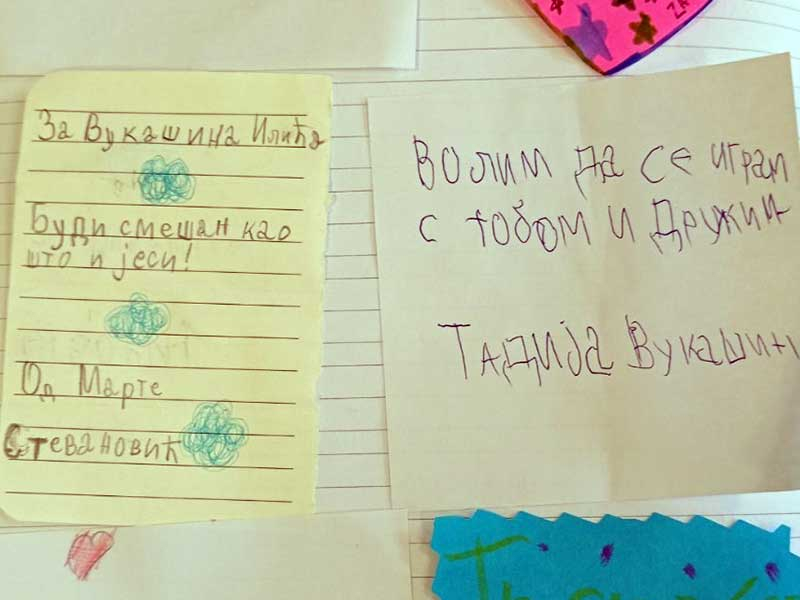 За Вукашина Илића
Буди смешан као
што и јеси!
Од Марте
Стевановић
ВОЛИМ ДА СЕ ИГРАМ
С ТОБОМ И ДРУЖИМ
ТАДИЈА ВУКАШИН